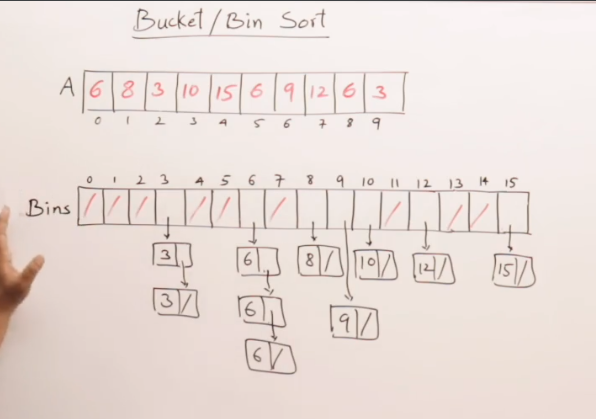 Bucket/Bin Sort
A 6 8 3 10 15 6 9 12 6 3
0 1 2 3 4 5 6 7 8 9
0 1 2 3 4 5 6 7 8 9 10 11 12 13 14 15
Bins / / / / / / / / /
3 6 8 / 10 / 12 / 15 /
3 / 6 9 /
6 /